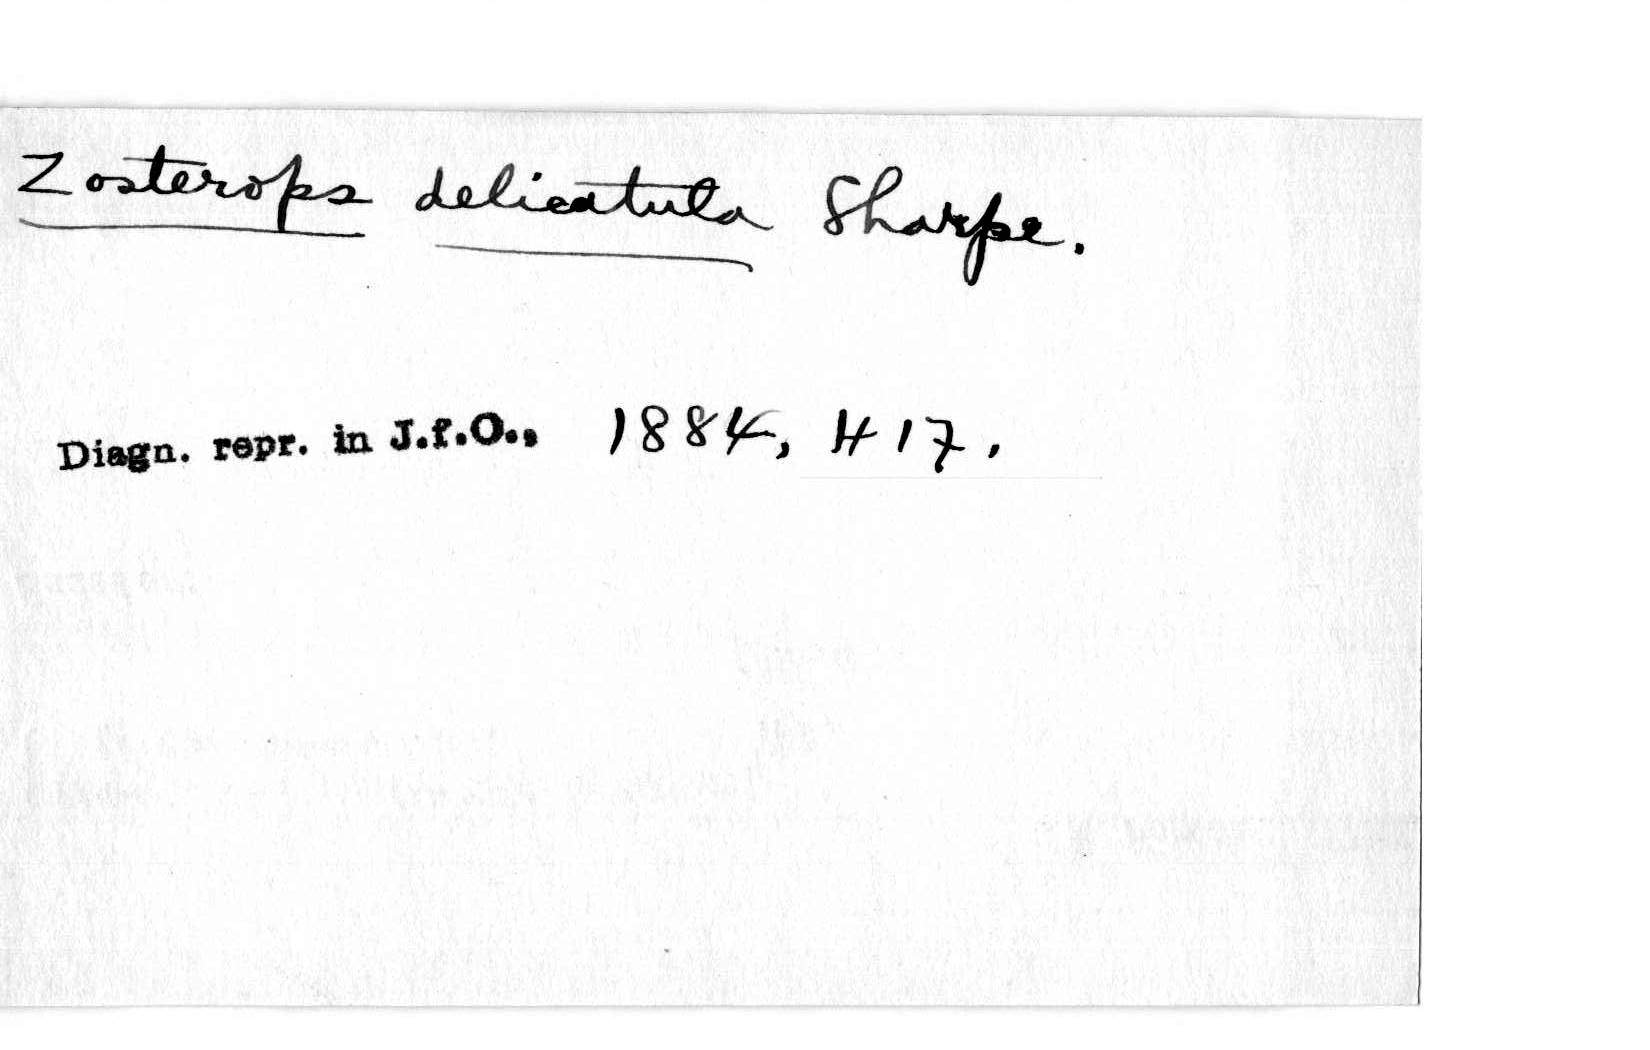 Zosterops delicatula Sharpe.
Diagn. repr. in J.f.O., 1884, 417.